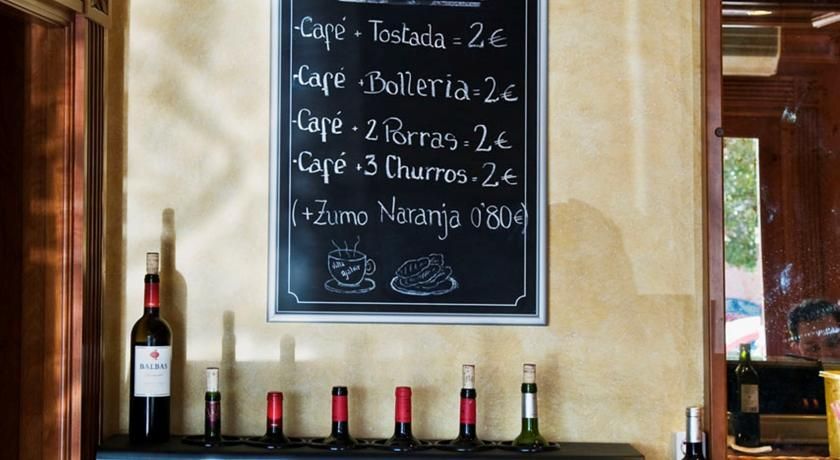 -Café + Tostada = 2€
-Café + Bolleria = 2€
-Café + 2 Porras = 2€
-Café + 3 Churros = 2€
(+Zumo Naranja 0'80€)
BALBAS